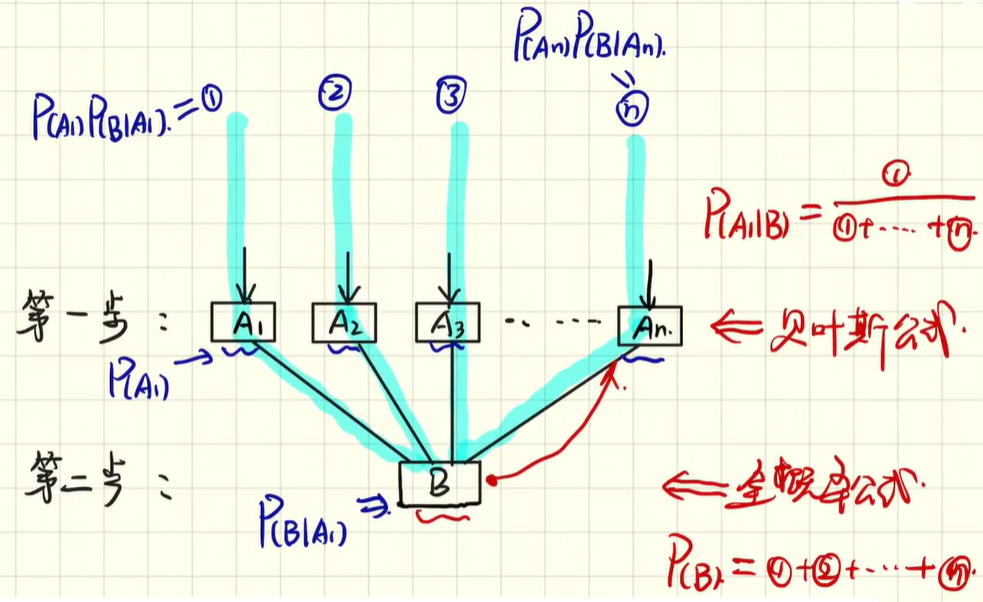 P(An)P(B|An).
P(A1)P(B|A1). = ① ② ③ ⓝ
P(A1|B) = ①/(①+‥‥+ⓝ).
第一步： A1 A2 A3 ‥ ‥‥ An. ⇐ 贝叶斯公式.
P(A1) →
第二步： B ⇐ 全概率公式.
P(B|A1) ⇒
P(B). = ①+②+‥‥+ⓝ.